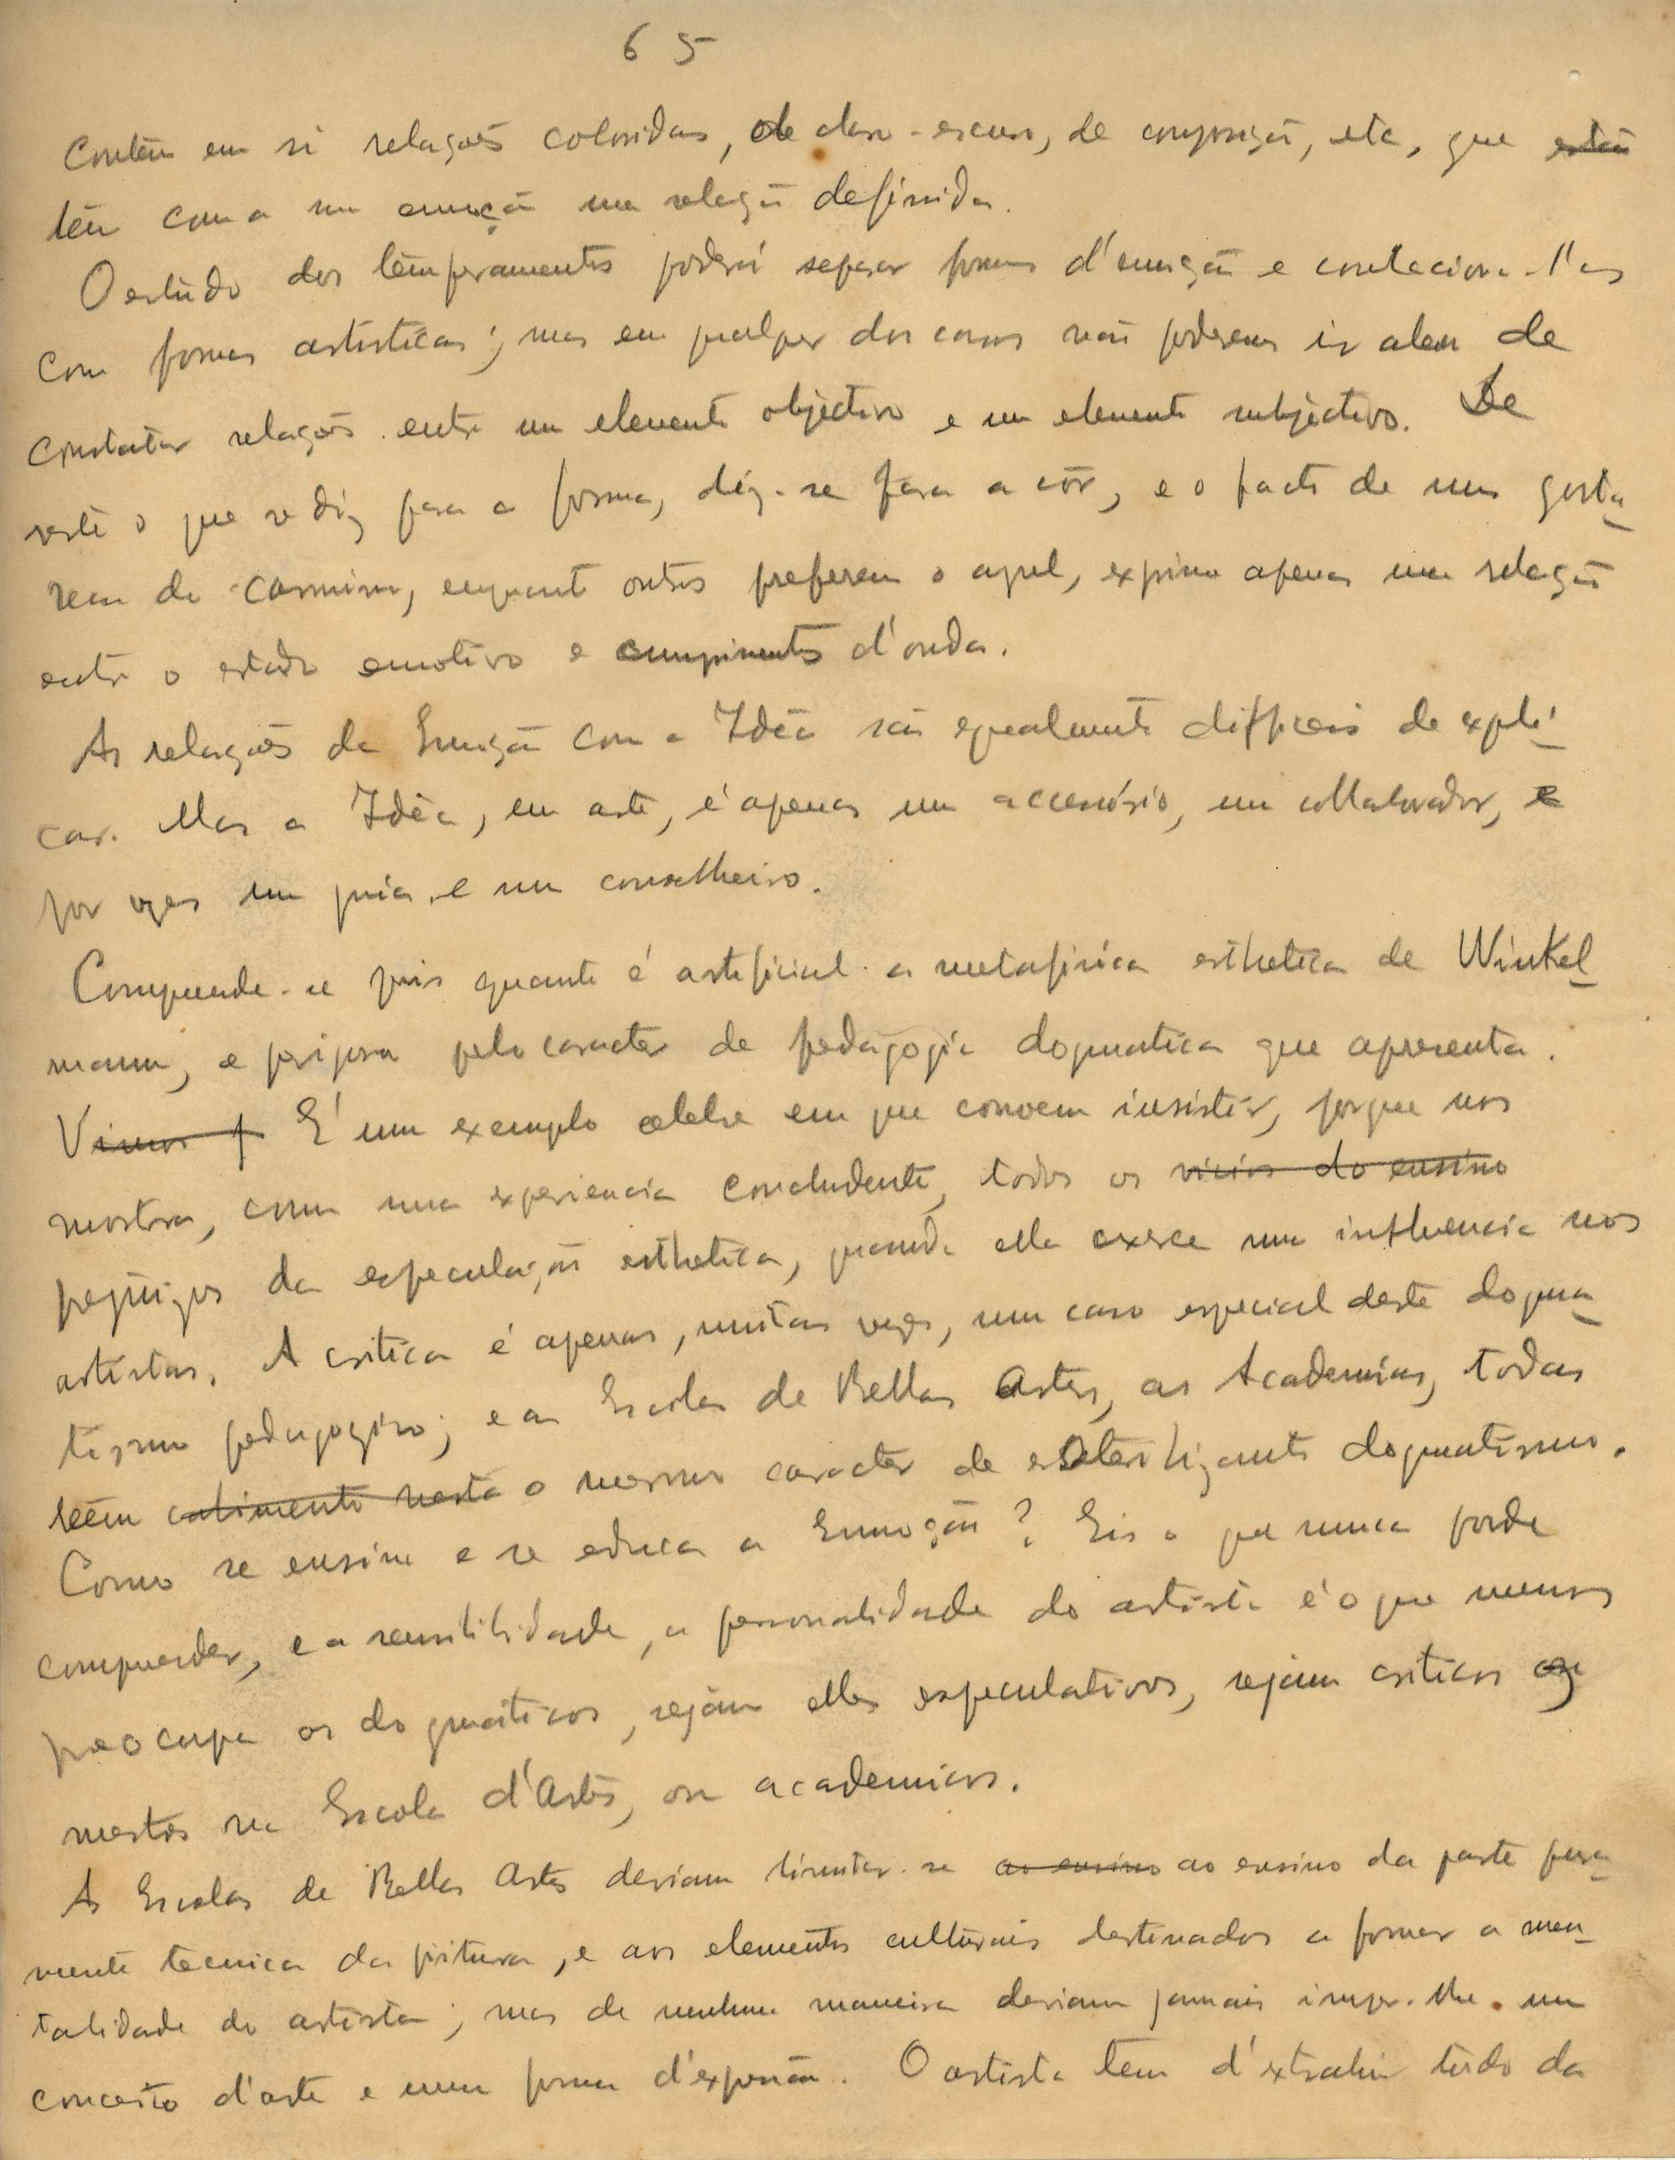 65
Contêm em si relações coloridas, de claro-escuro, de composição, etc, que estão
têm com a nu emoção uma relação definida.
O estudo dos têmperamentos poderá separar formas d'emoção e correlaciona-l'as
com formas artisticas; mas em qualquer dos casos não poderemos ir alem de
constatar relações entre um elemento objectivo e um elemento subjectivo. De
resto o que se diz para a forma, diz-se para a côr, e o facto de uns gosta_
rem do carmim, emquanto outros preferem o azul, exprime apenas uma relação
entre o estado emotivo e comprimentos d'onda.
As relações da Emoção com a Idêa são egualmente difficeis de expli_
car. Mas a Idêa, em arte, é apenas um accessório, um collaborador, e
por vezes um guia, e um conselheiro.
Comprende-se pois quanto é artificial a metafisica esthetica de Winkel_
mann, e perigosa pelo caracter de pedagogia dogmatica que apresenta.
Vimos f E' um exemplo celebre em que convem insistir, porque nos
mostra, com uma experiencia concludente, todos os vicios do ensino
prejuizos da especulação esthetica, quando ella exerce uma influencia nos
artistas. A critica é apenas, muitas vezes, um caso especial deste dogma_
tismo pedagogico; e as Escolas de Bellas Artes, as Academias, todas
têem o mesmo caracter de esterilizante dogmatismo.
Como se ensina e se educa a Emoção? Eis o que nunca pode
comprender, e a sensibilidade, a personalidade do artista é o que menos
preocupa os dogmáticos, sejam elles especulativos, sejam criticos
mestres na Escola d'Artes, ou academicos.
As Escolas de Bellas Artes deviam limitar-se ao ensino ao ensino da parte pura_
mente tecnica da pintura, e aos elementos culturais destinados a formar a men_
talidade do artista; mas de nenhuma maneira deviam jamais impor-lhe um
conceito d'arte e uma forma d'expressão. O artista tem d'extrahir tudo da